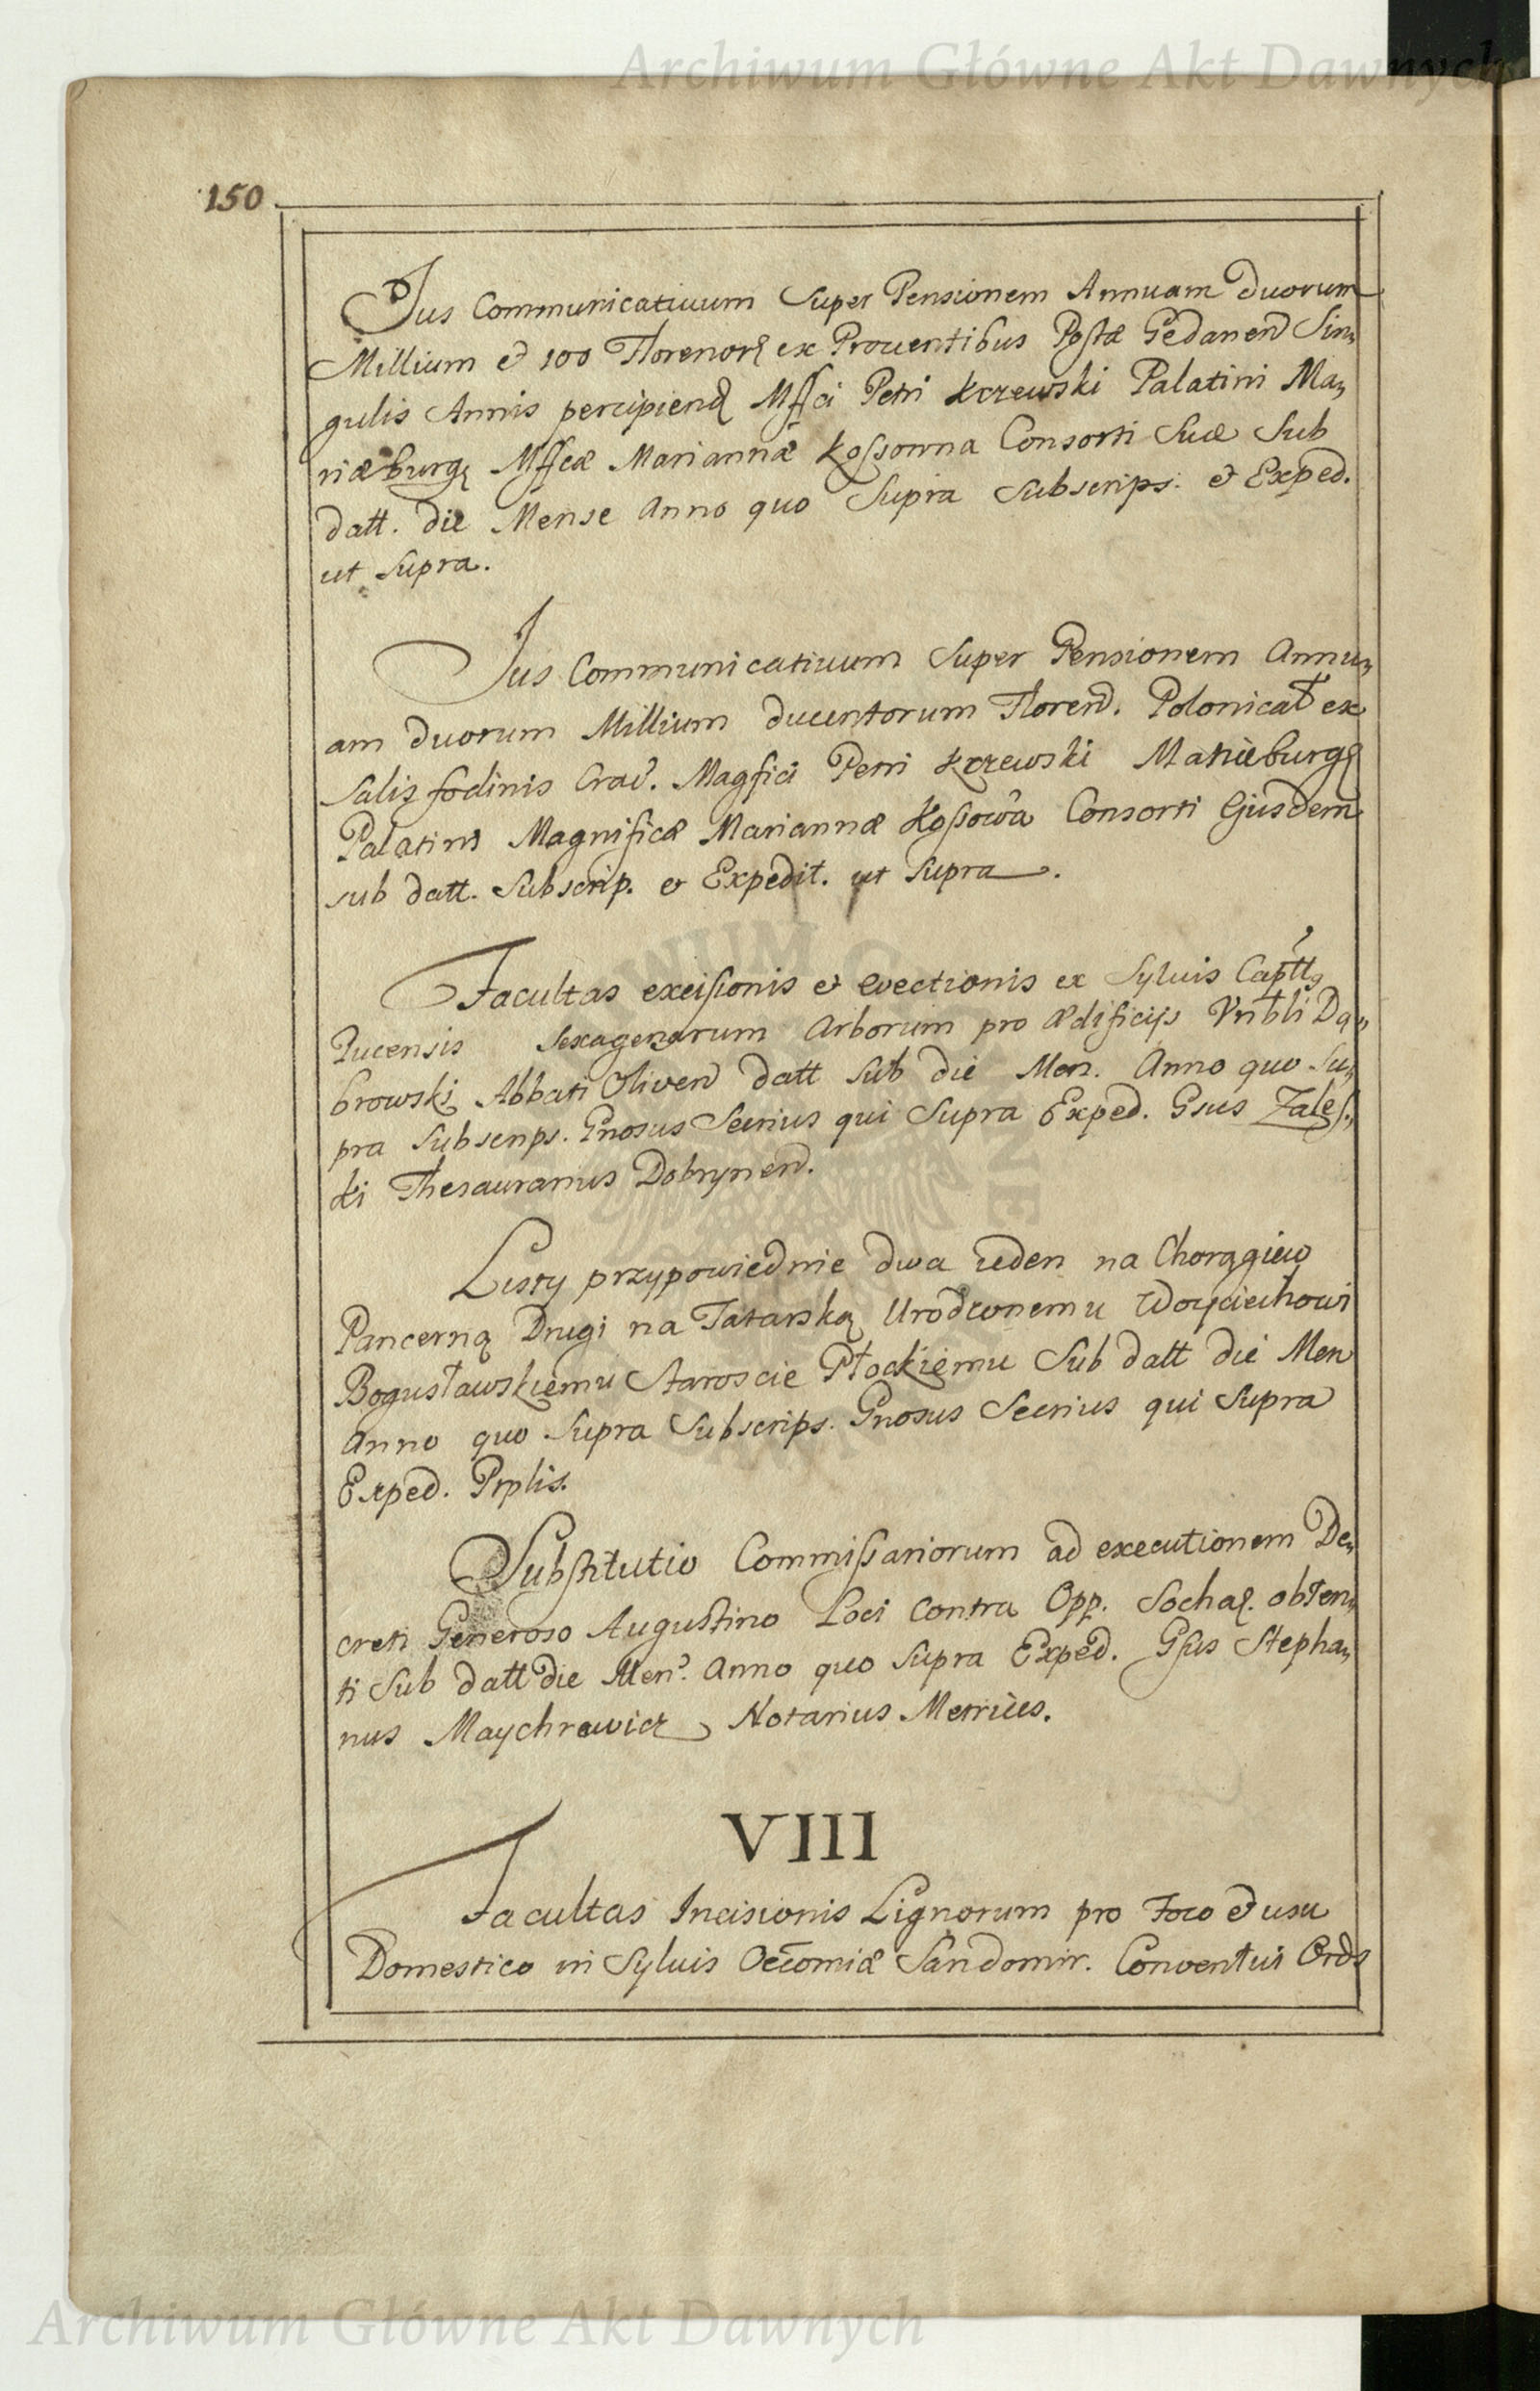 Archiwum Główne Akt Dawnych
150
Jus Communicativum Super Pensionem Annuam duorum
Millium et 100 Florenorꝝ ex Proventibus Postæ Gedanen Sin„
gulis Annis percipiend Mffci Petri Kczewski Palatini Ma„
riæburgꝫ Mffcæ Mariannæ Kossowna Consorti Suæ Sub
datt. die Mense Anno quo Supra Subscrips. et Exped.
ut Supra.
Jus Communicativum Super Pensionem Annu„
am duorum Millium ducentorum Floren. Polonical ex
Salis fodinis Crac. Magfici Petri Kczewski Mariæburgꝫ
Palatini Magnificæ Mariannæ Kossowa Consorti Ejusdem
sub datt. Subscrip. et Expedit. ut Supra.
Facultas excisionis et evectionis ex Sylvis Captt
Pucensis Sexagenarum Arborum pro Ædificijs Vnbli Dą„
browski Abbati Oliven datt sub die Men. Anno quo Su„
pra Subscrips. Gnosus Secrius qui Supra Exped. Gsus Zales„
ki Thesaurarius Dobrynen.
Listy przypowiednie dwa ieden na Chorągiew
Pancerną Drugi na Tatarską Urodzonemu Woyciechowi
Bogusławskiemu Staroscie Płockiemu Sub datt die Men
Anno quo Supra Subscrips. Gnosus Secrius qui Supra
Exped. Prplis.
Substitutio Commissariorum ad executionem De„
creti Generoso Augustino Loci contra Opp. Sochaꝫ. obten„
ti Sub datt die Men. Anno quo Supra Exped. Gsus Stepha„
nus Maychrowicz Notarius Metrices.
VIII
Facultas Incisionis Lignorum pro Foco et usu
Domestico in Sylvis Oecomiæ Sandomir. Conventui Ords
Archiwum Główne Akt Dawnych